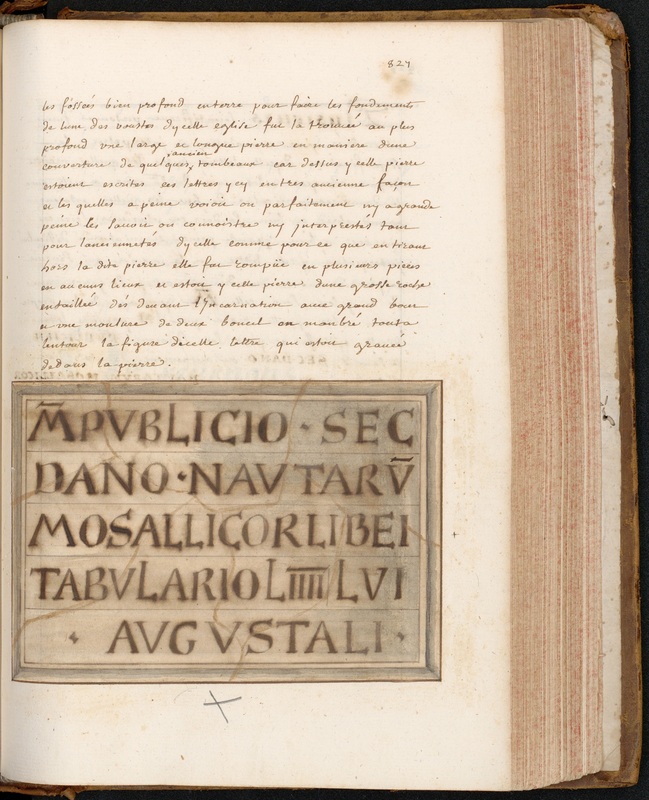 827
les fossés bien profond enterre pour faire les fondements
de lune des voustes dycelle eglise fut la trouvée au plus
profond vne large et longue pierre en maniere dune
couverture de quelques ancien tombeaux car dessus ycelle pierre
estoient escrites ces lettres ycy en tres ancienne façon
et les quelles a peine voioit on parfaitement ny a grande
peine les sauoir ou connoistre ny interpretés tant
pour lancienneté dycelle comme pour ce que en tirant
hors la dite pierre elle fut rompüe en plusieurs pieces
en aucuns lieux et estoit ycelle pierre dune grosse roche
entaillée dés deuant lincarnation auec grand
a vne moulure de deux en tout a
lentour la figure dicelle lettre qui estoit grauée
dedans la pierre.
M̄PVBLICIO · SEC
DANO · NAVTARV̄
MOSALLICORLIBEI
TABVLARIO LIIIIILVI
· AVGVSTALI ·